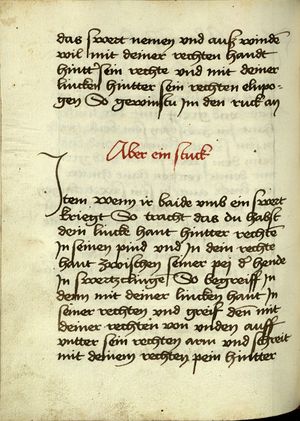 das swert nemen vnd auß winde
wil mit deiner rechten handt
hintt sein rechte vnd mit deiner
lincken hintter sein rechten elnpo-
gen So gewinstu im den ruck an
Aber ein stuck
Item wenn ir baide vmb ein swert
kriegt So tracht das du habst
dein linck haut hintter rechte
in seinen pind vnd in dein rechte
haut zwischen seiner peid hende
in swertz clinge So begreiff in
denn mit deiner lincken haut in
seiner rechten vnd greif den mit
deiner rechten von vnden auff
vntter sein rechten arm vnd schreit
mit deinem rechten pein hintter